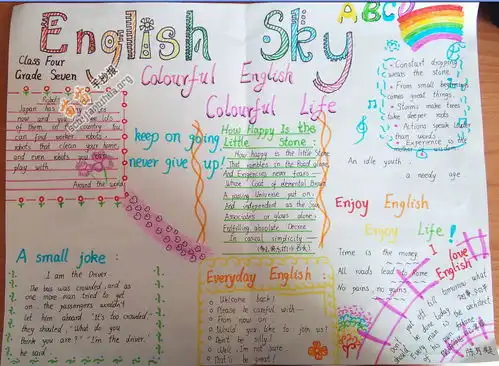 English Sky
ABCD
Class Four
Grade Seven
Colourful English
Colourful Life
Robots
Japan has
now and
of them
can find worker robots
robots that clean your home
and even robots you
play with
Around the world
keep on going
never give up!
How Happy Is the
Little Stone
How happy is the little Stone
That rambles in the Road alone
And Exigencies never fears
Whose Coat of elemental Brown
A passing Universe put on
And independent as the Sun
Associates or glows alone
Fulfilling absolute Decree
In casual simplicity
Constant dropping
wears the stone.
From small beginnings
comes great things.
Storms make trees
take deeper roots
Actions speak louder
than words
Experience is the
An idle youth
a needy age
Enjoy English
Enjoy Life!
Time is the money
All roads lead to Rome
No pains, no gains
I love English
A small joke:
I am the Driver
The bus was crowded, and as
one more man tried to get
on the passengers wouldn't
let him aboard "It's too crowded"
they shouted, "Who do you
think you are?" "I'm the driver."
he said
Everyday English:
Welcome back!
Please be careful with
From now on
Would you like to join us?
Don't be silly!
Well, I'm not sure
That'll be great!